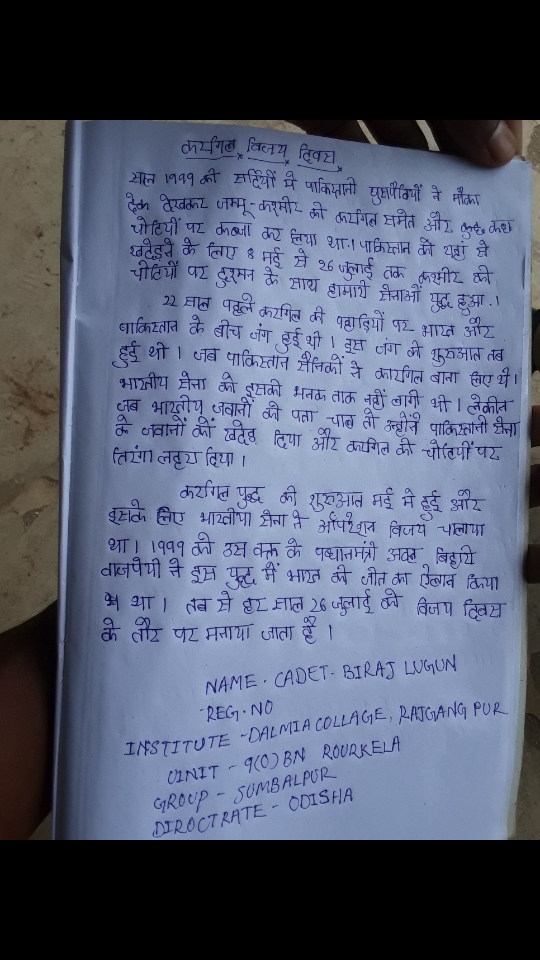 कारगिल विजय दिवस
साल 1999 की सर्दियों में पाकिस्तानी घुसपैठियों ने मौका
देखकर जम्मू-कश्मीर की कारगिल समेत और कुछ
चोटियों पर कब्जा कर लिया था। पाकिस्तान को यहां से
खदेड़ने के लिए 8 मई से 26 जुलाई तक कश्मीर की
चोटियों पर दुश्मन के साथ हामारी सेनाओं युद्ध हुआ।
22 साल पहले करगिल की पहाड़ियों पर भारत और
पाकिस्तान के बीच जंग हुई थी। इस जंग की शुरुआत तब
हुई थी। जब पाकिस्तान सैनिकों ने कारगिल बाना लिए थे।
भारतीय सेना को इसकी भनक ताक नहीं लगी थी। लेकीन
जब भारतीय जवानों को पता चाल तो उन्होंने पाकिस्तानी सेना
के जवानों को खदेड़ दिया और करगिल की चोटियों पर
तिरंगा लहरा दिया।
कारगिल युद्ध की शुरुआत मई में हुई और
इसके लिए भारतीया सेना ने ऑपरेशन विजय चालाया
था। 1999 को उस वक्त के प्रधानमंत्री अटल बिहारी
वाजपेयी ने इस युद्ध में भारत की जीत का ऐलान किया
था। तब से हर साल 26 जुलाई को विजय दिवस
के तौर पर मनाया जाता है।
NAME - CADET - BIRAJ LUGUN
REG. NO
INSTITUTE - DALMIA COLLAGE, RAJGANGPUR
UINIT - 9(O) BN ROURKELA
GROUP - SUMBALPUR
DIROCTRATE - ODISHA